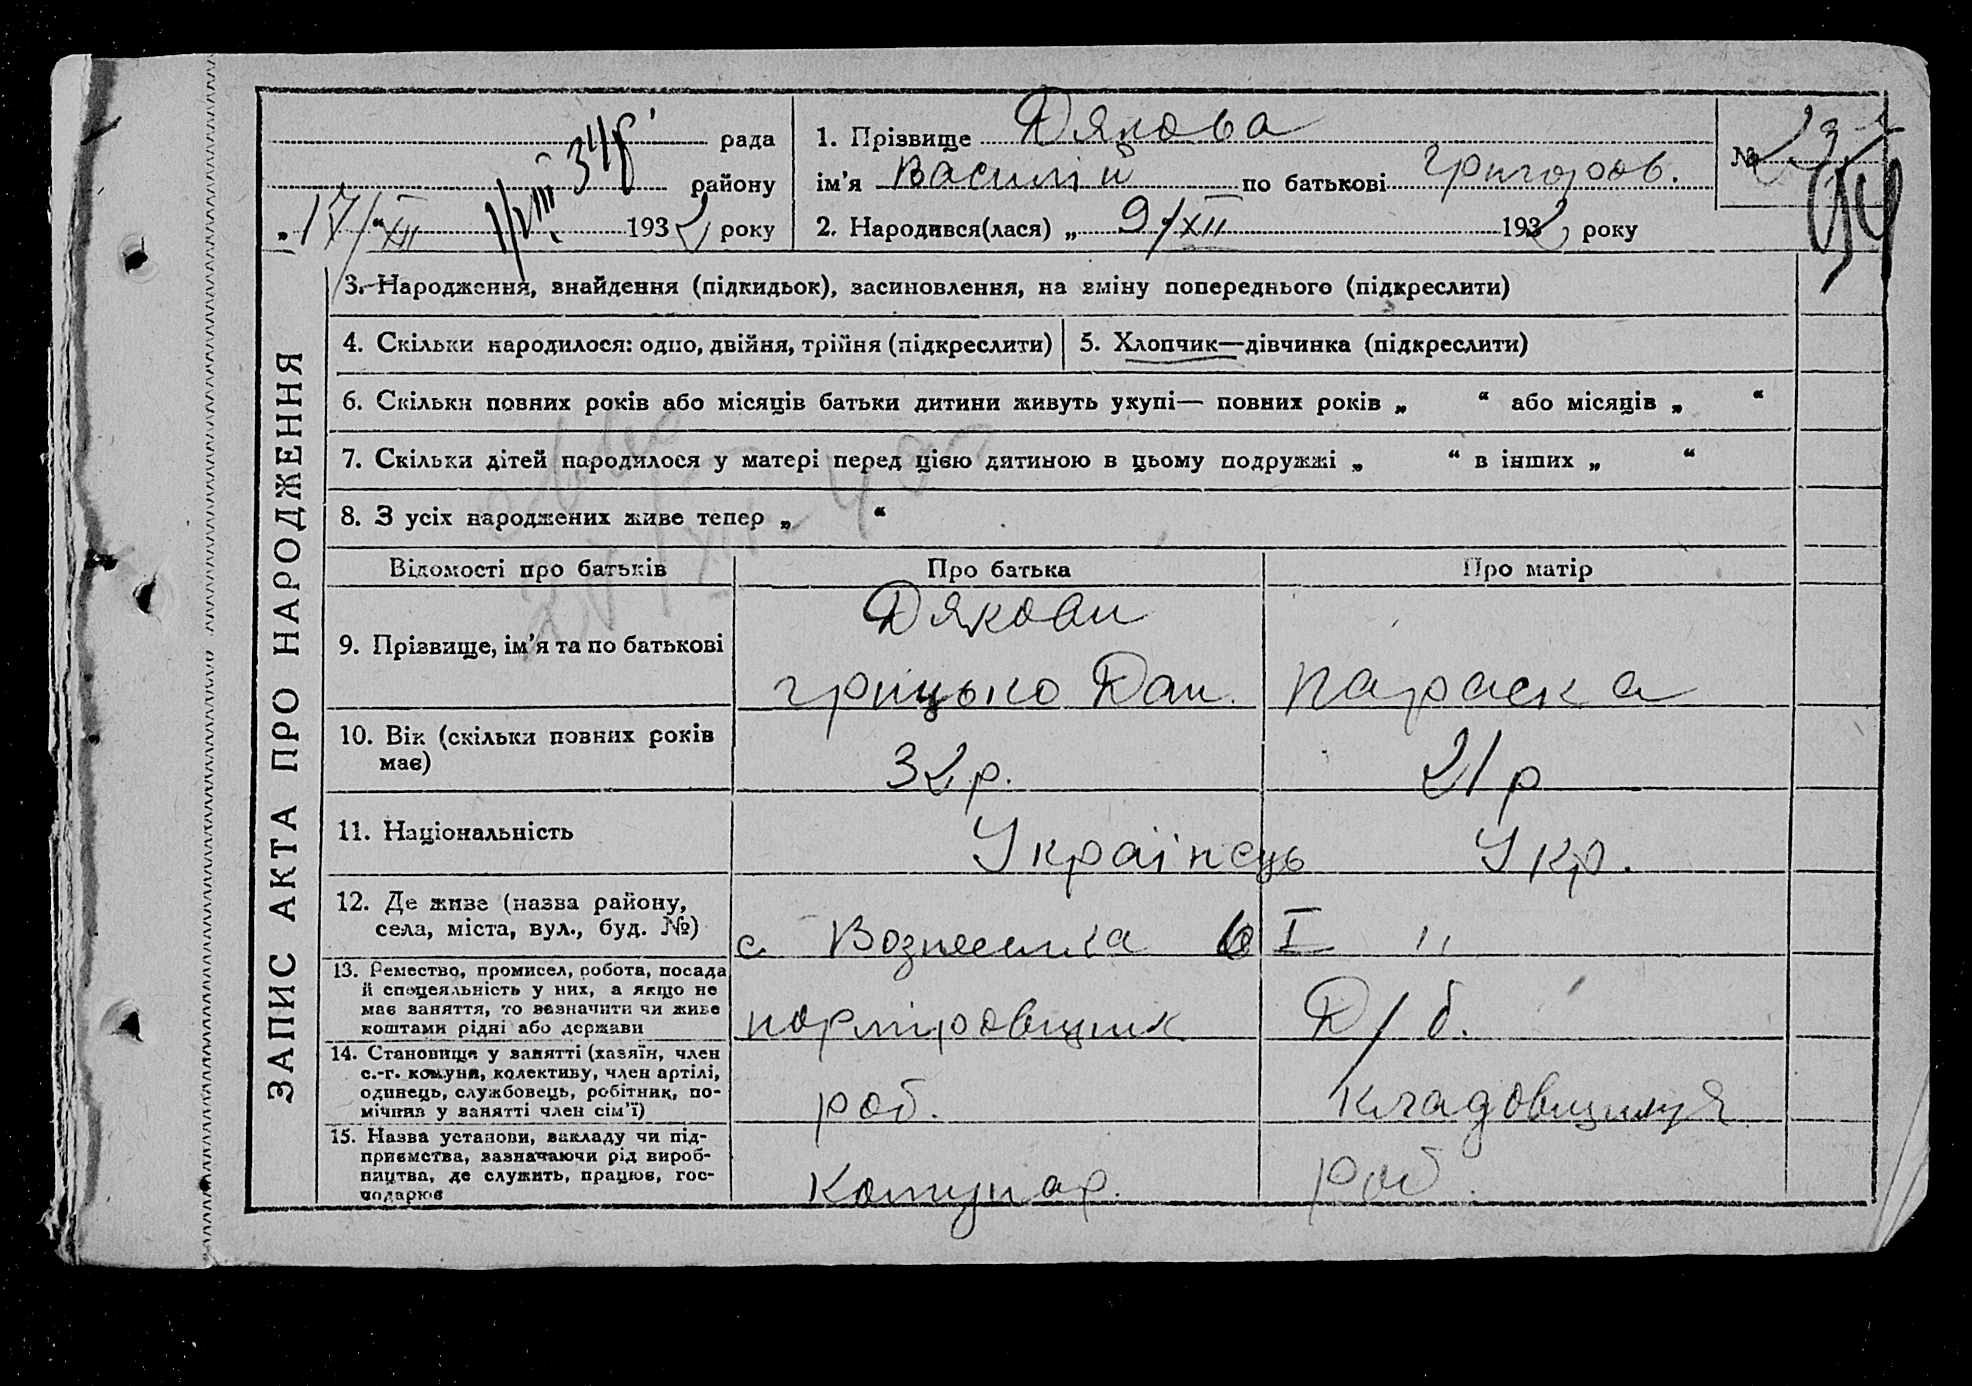 рада
району
„17/“XII 1932 року
1. Прізвище Дякова
ім'я Василій по батькові Григоров.
2. Народився(лася) „9/“XII 1932 року
№ 23
ЗАПИС АКТА ПРО НАРОДЖЕННЯ
3. Народження, знайдення (підкидьок), засиновлення, на зміну попереднього (підкреслити)
4. Скільки народилося: одно, двійня, трійня (підкреслити)
5. Хлопчик—дівчинка (підкреслити)
6. Скільки повних років або місяців батьки дитини живуть укупі— повних років „ “ або місяців „ “
7. Скільки дітей народилося у матері перед цією дитиною в цьому подружжі „ “ в інших „ “
8. З усіх народжених живе тепер „ “
Відомості про батьків
Про батька
Про матір
9. Прізвище, ім'я та по батькові
Дякови
Грицько Дан.
Параска
10. Вік (скільки повних років
має)
32 р.
21 р
11. Національність
Українець
Укр.
12. Де живе (назва району,
села, міста, вул., буд. №)
с. Вознесенка
I
"
13. Ремество, промисел, робота, посада
й спецеяльність у них, а якщо не
має заняття, то зазначити чи живе
коштами рідні або держави
норміровщик
Д/б.
14. Становище у занятті (хазяїн, член
с.-г. комуни, колективу, член артілі,
одинець, службовець, робітник, по-
мічник у занятті член сім'ї)
роб.
Кладовщиця
15. Назва установи, закладу чи під-
приємства, зазначаючи рід вироб-
ництва, де служить, працює, гос-
подарює
Комунар.
роб.